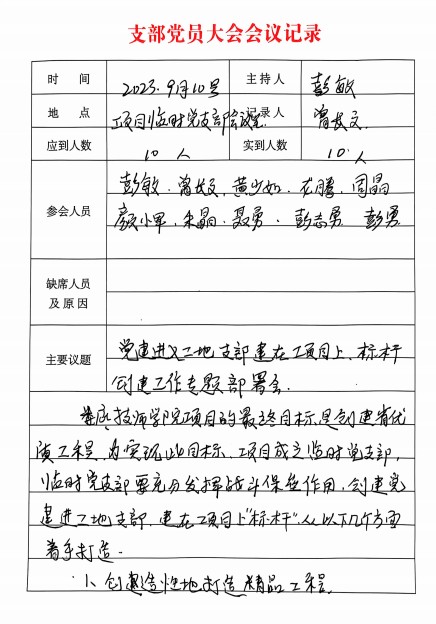 支部党员大会会议记录
时 间 2023.9月10号 主持人 彭敏
地 点 项目临时党支部会议室 记录人 曾长文
应到人数 10人 实到人数 10人
参会人员 彭敏、曾长文、黄少如、龙腾、周晶
颜小军、朱晶、聂勇、彭志勇 彭勇
缺席人员
及原因
主要议题 党建进工地支部建在项目上、标杆
创建工作专题部署会.
技师学院项目的最终目标是创建省优
质工程、为实现此目标、项目成立临时党支部,
临时党支部要充分发挥战斗堡垒作用,创建党
建进工地支部、建在项目上"标杆"从以下几个方面
着手打造.
1、创造性地打造精品工程,